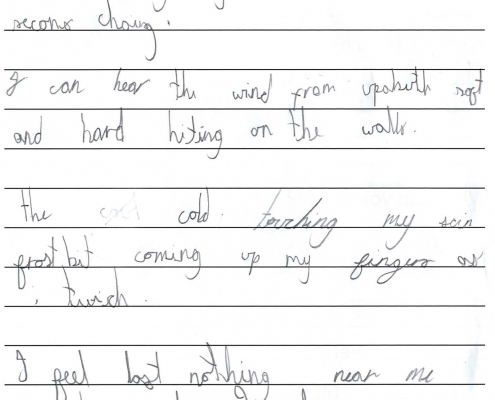 second
I can hear the wind from soft
and hard hiting on the walls.
the cold cold. touching my scin
frost bit coming up my fingers as
i twich.
I feel lost nothing near me